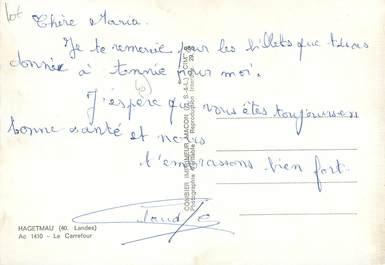 lot
Chère Maria.
Je te remercie pour les billets que tu as
donnée à Tennie pour moi.
J'éspère que vous êtes toujours en
bonne santé et nous
t'embrassons bien fort.
HAGETMAU (40. Landes)
Ac 1410 - Le Carrefour
COMBIER IMPRIMEUR MACON (S.-&-L.) "CIM"